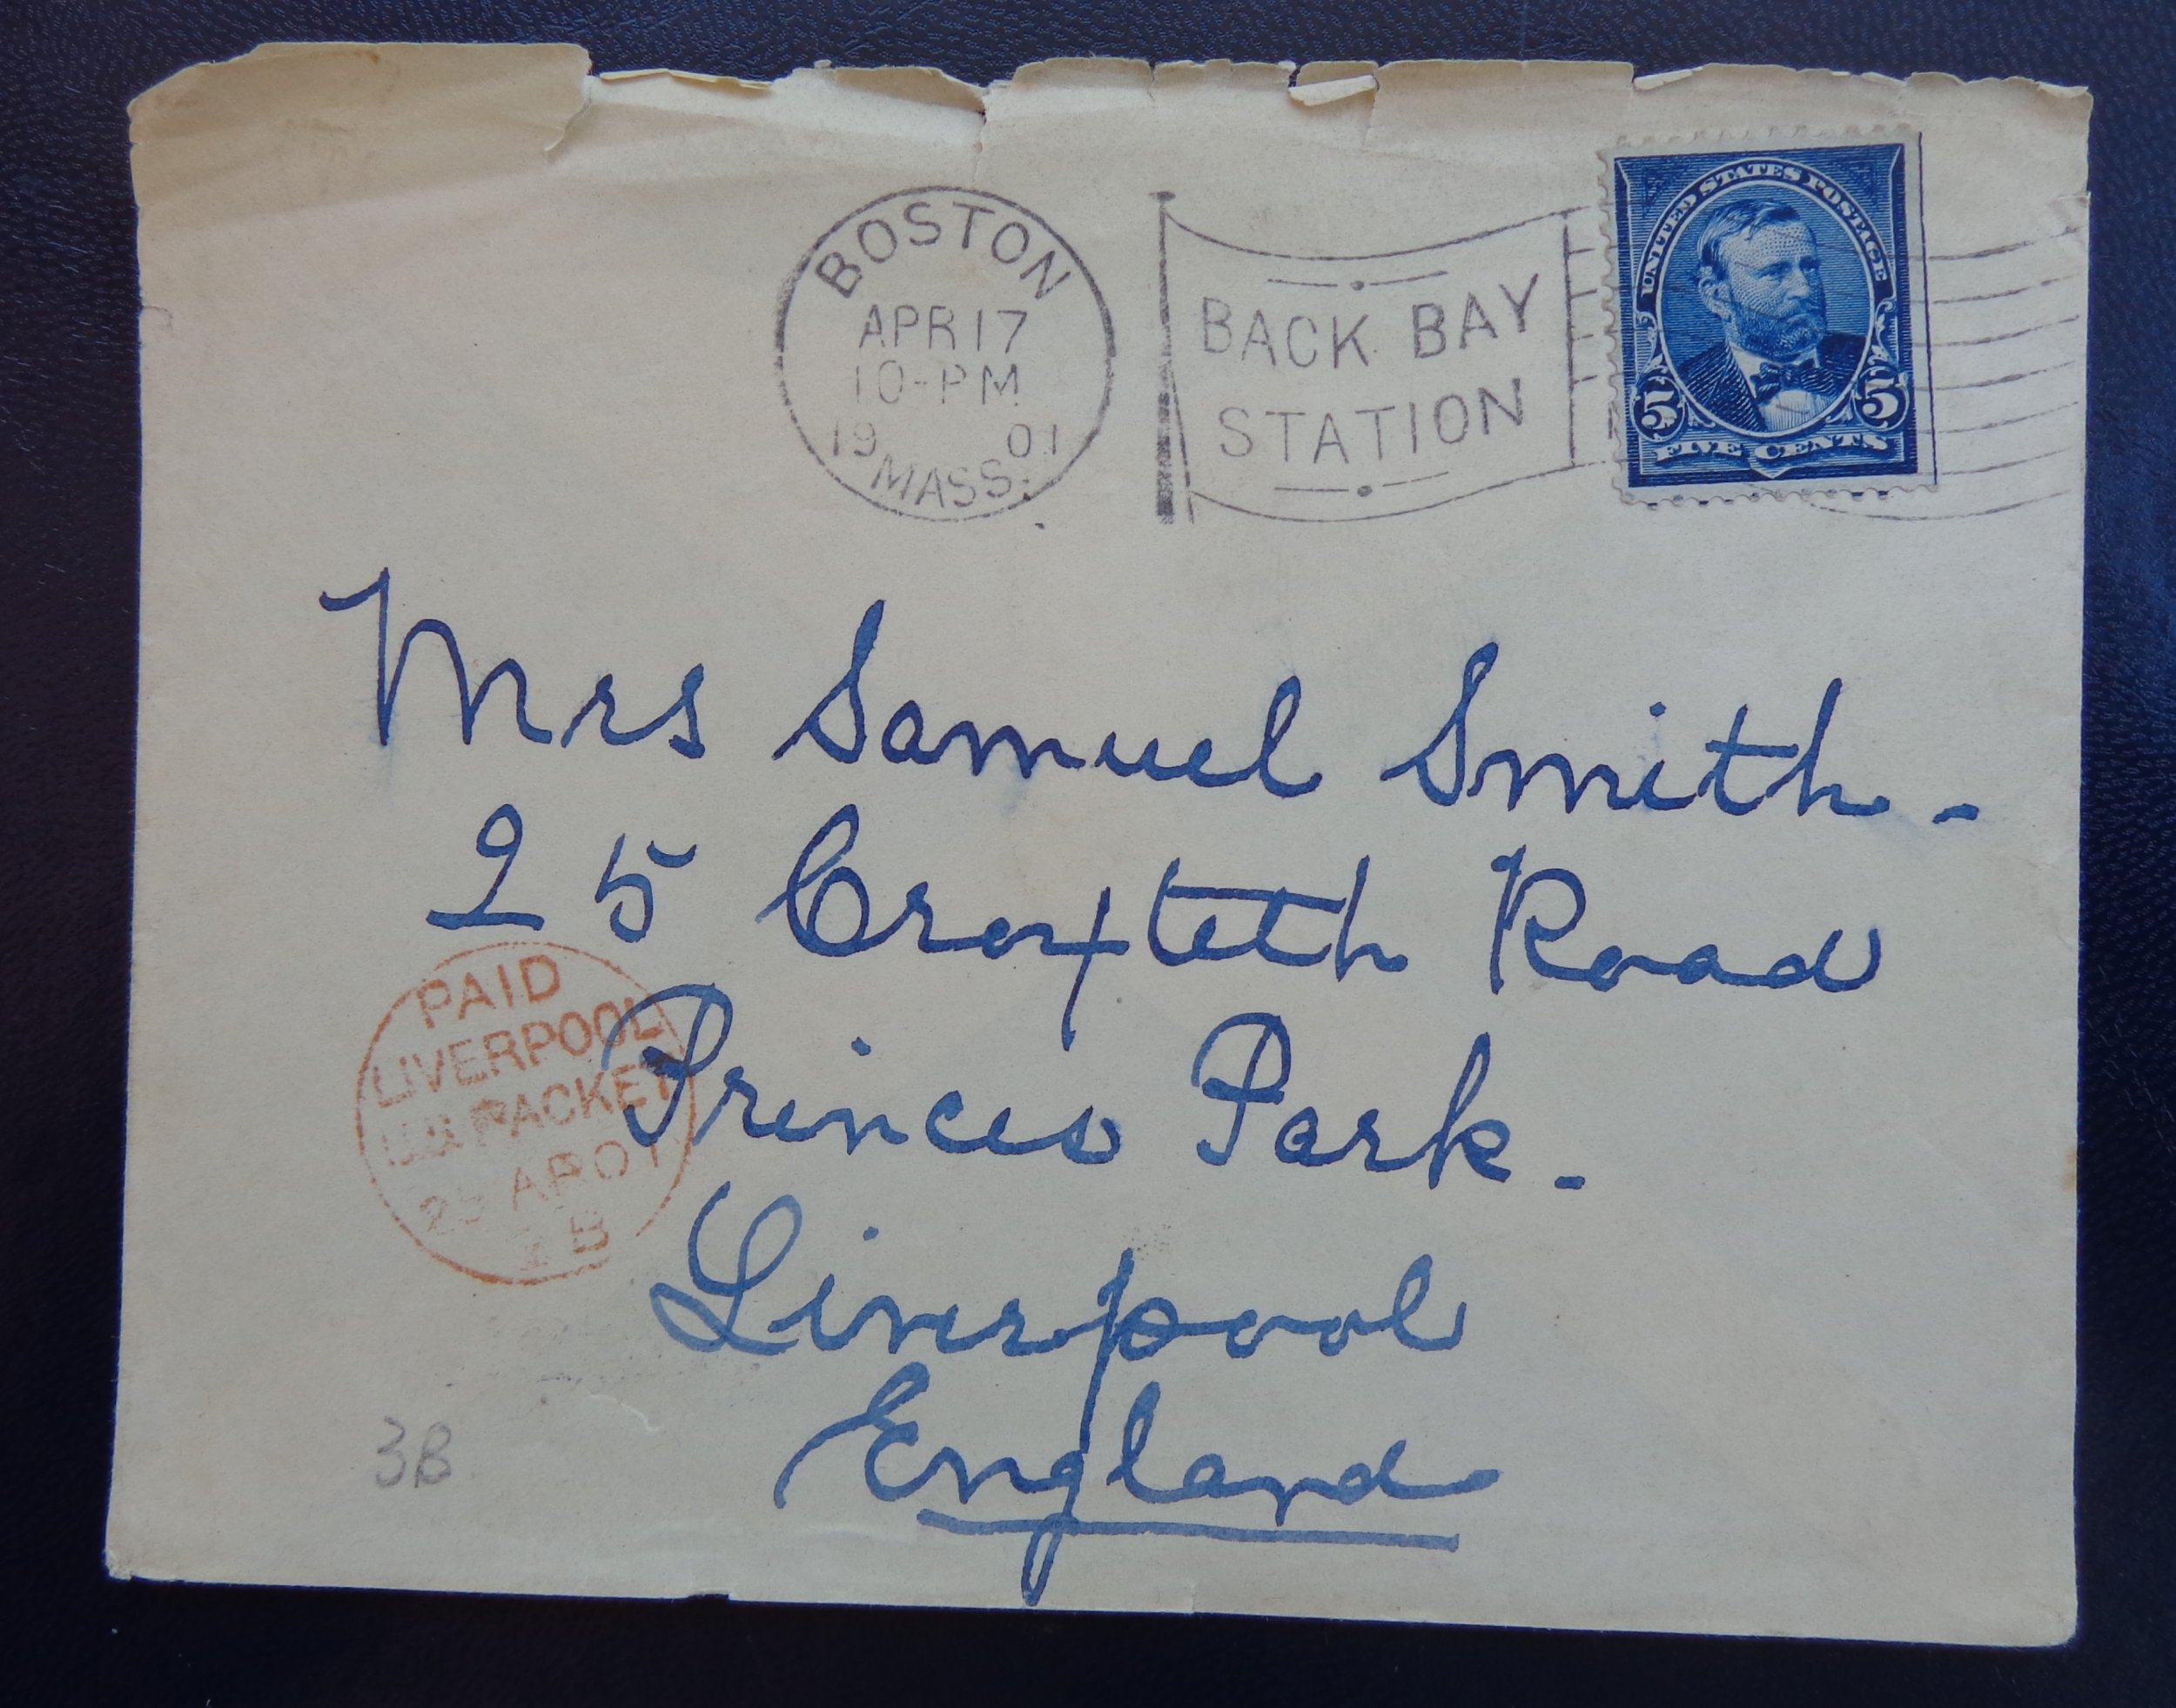 BOSTON
APR 17
10-PM
19 01
MASS.
BACK BAY
STATION
UNITED STATES POSTAGE
5 5
FIVE CENTS
Mrs Samuel Smith -
25 Croxteth Road
Princes Park -
Liverpool
England
PAID
LIVERPOOL
U.S. PACKET
AP 01
B
3B